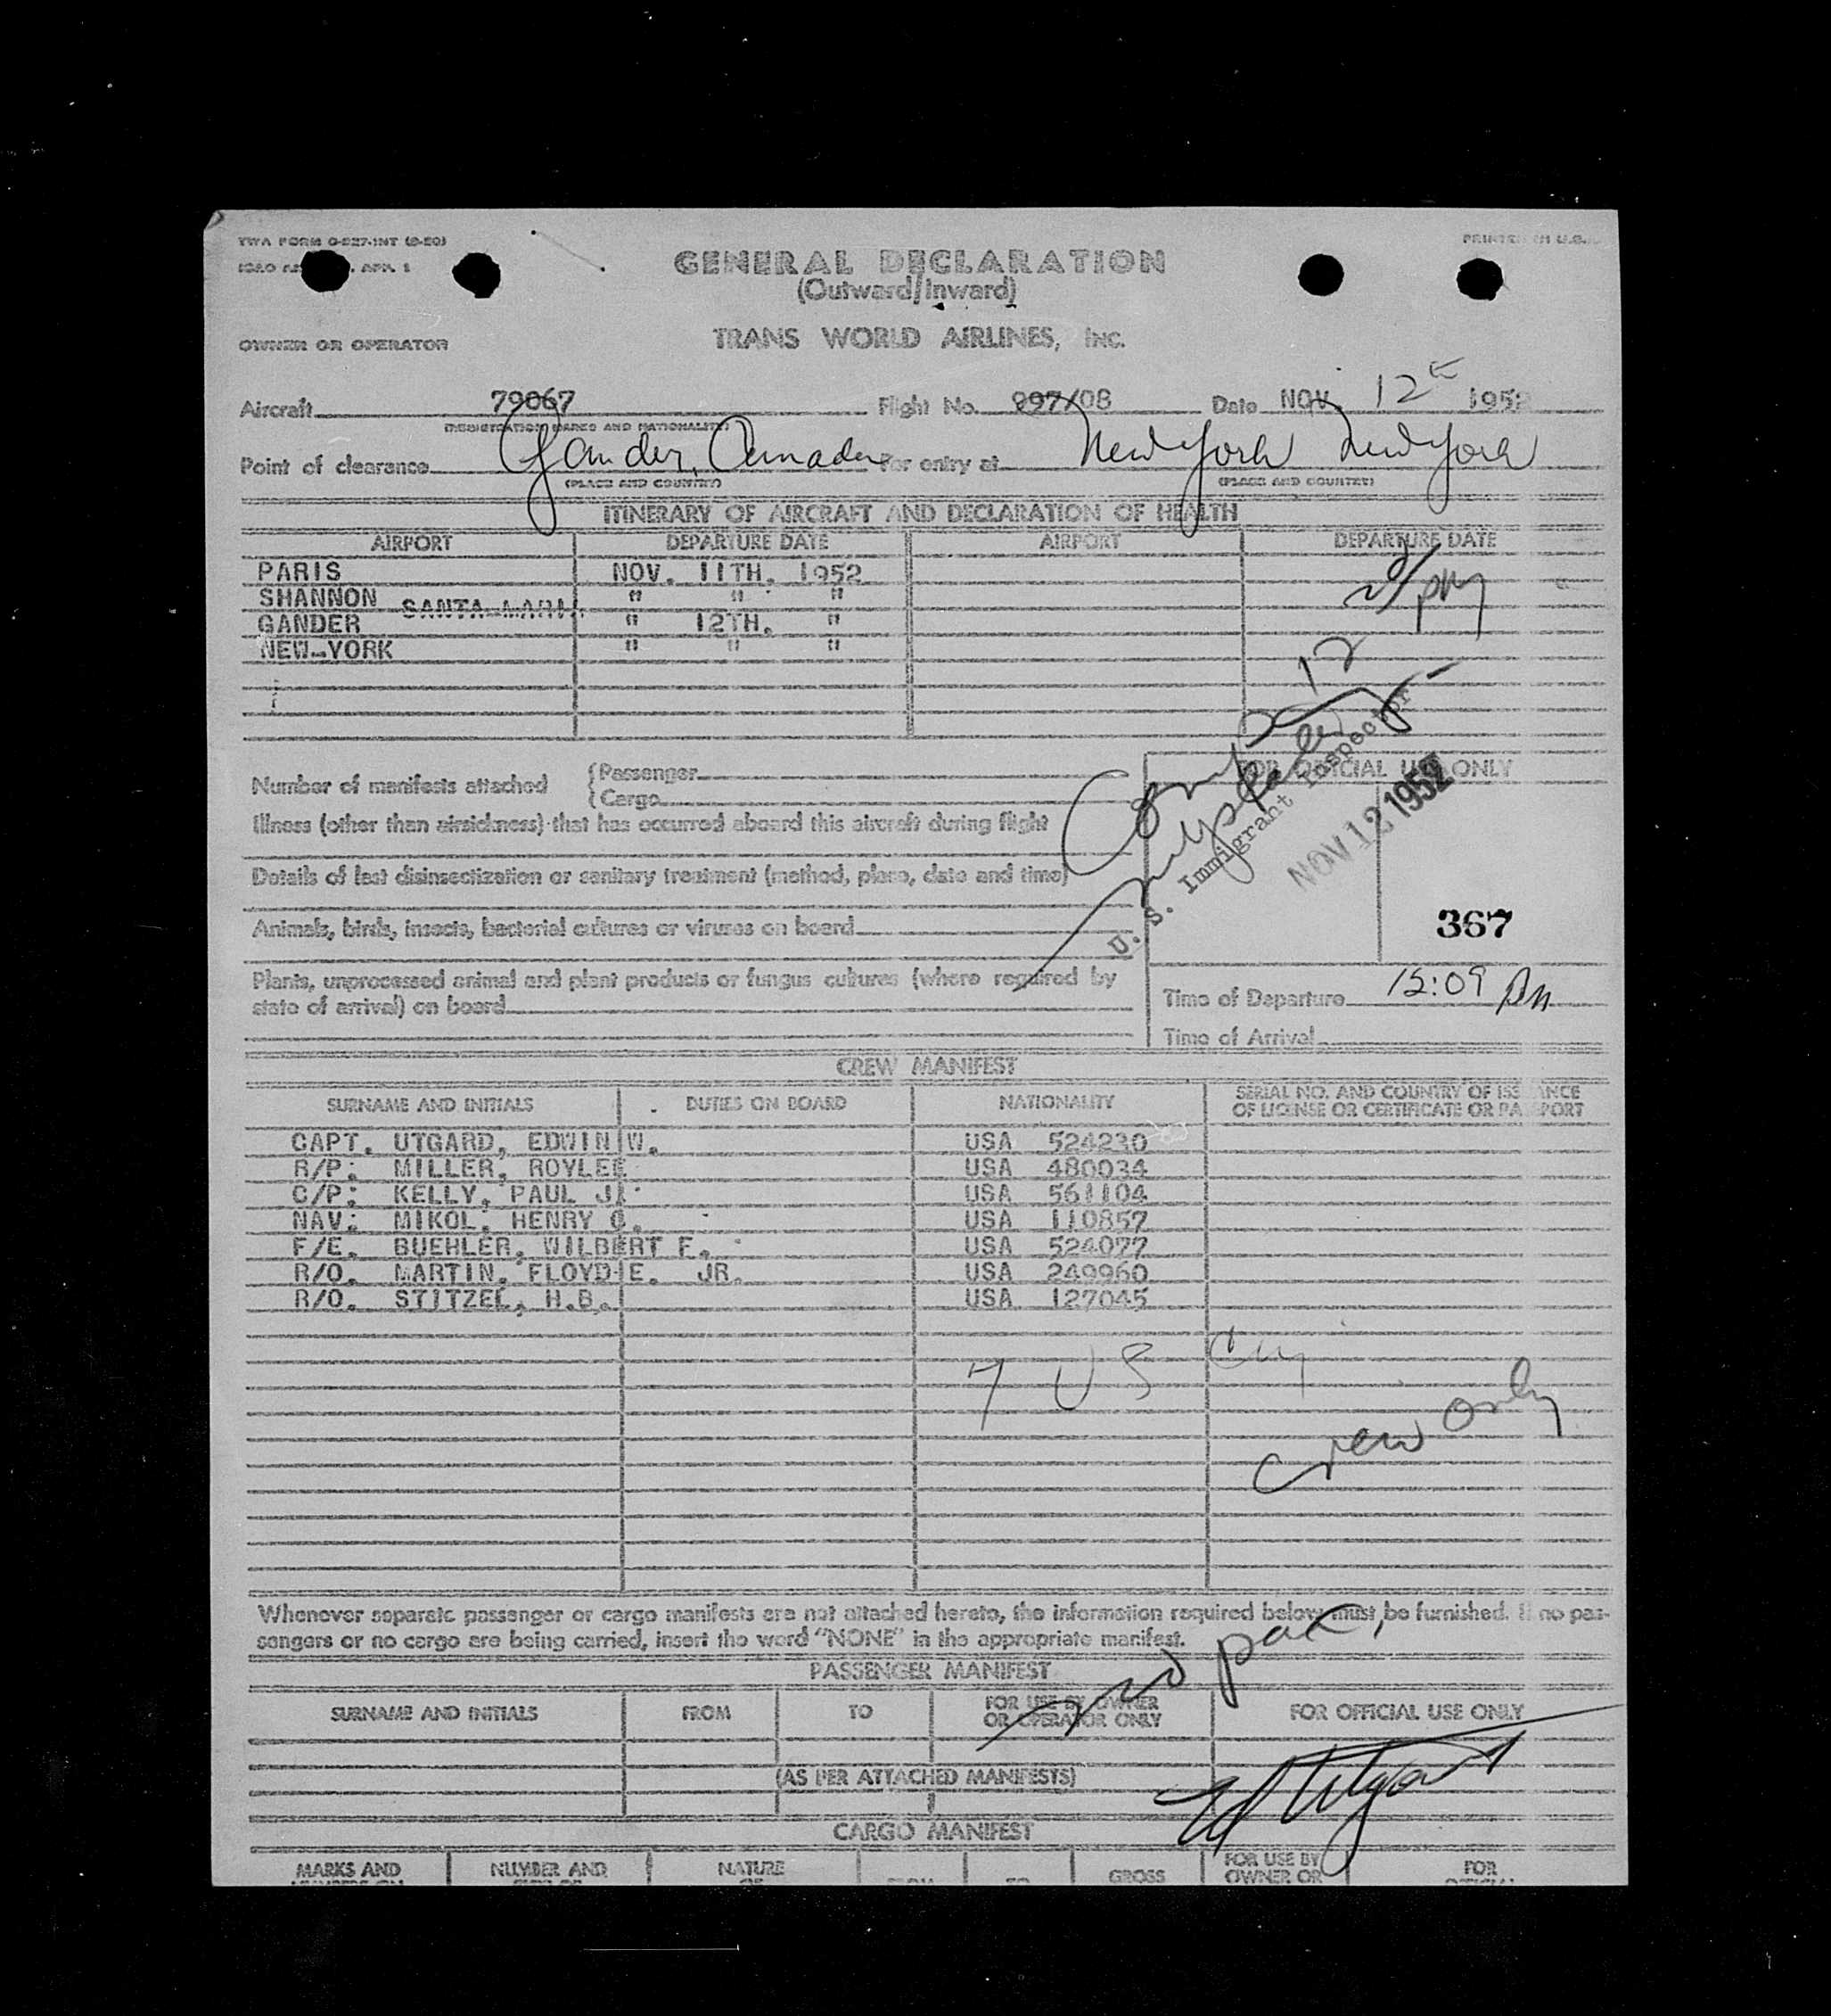 TWA FORM O-227-INT (9-50)
PRINTED IN U.S.
GENERAL DECLARATION
(Outward/Inward)
OWNER OR OPERATOR TRANS WORLD AIRLINES, INC.
Aircraft 79067 Flight No. 997/08 Date NOV. 12 1952
(REGISTRATION MARKS AND NATIONALITY)
Point of clearance Gander, Canada For entry at New York New York
(PLACE AND COUNTRY) (PLACE AND COUNTRY)
ITINERARY OF AIRCRAFT AND DECLARATION OF HEALTH
AIRPORT DEPARTURE DATE AIRPORT DEPARTURE DATE
PARIS NOV. 11TH. 1952
SHANNON " " "
SANTA-MARIA
GANDER " 12TH. "
NEW-YORK " " "
12
Number of manifests attached {Passenger
{Cargo
FOR OFFICIAL USE ONLY
U. S. Immigrant Inspector
NOV 12 1952
Illness (other than airsickness) that has occurred aboard this aircraft during flight
Details of last disinsectization or sanitary treatment (method, place, date and time)
367
Animals, birds, insects, bacterial cultures or viruses on board
Plants, unprocessed animal and plant products or fungus cultures (where required by
state of arrival) on board
Time of Departure 12:09 Pm
Time of Arrival
CREW MANIFEST
SURNAME AND INITIALS DUTIES ON BOARD NATIONALITY SERIAL NO. AND COUNTRY OF ISSUANCE
OF LICENSE OR CERTIFICATE OR PASSPORT
CAPT. UTGARD, EDWIN W. USA 524230
R/P: MILLER, ROYLEE USA 480034
C/P: KELLY, PAUL J. USA 561104
NAV: MIKOL, HENRY C. USA 110857
F/E. BUEHLER, WILBERT F. USA 524077
R/O. MARTIN, FLOYD E. JR. USA 249960
R/O. STITZEL, H.B. USA 127045
7 US
Crew only
Whenever separate passenger or cargo manifests are not attached hereto, the information required below must be furnished. If no pas-
sengers or no cargo are being carried, insert the word "NONE" in the appropriate manifest.
no pax,
PASSENGER MANIFEST
SURNAME AND INITIALS FROM TO FOR USE BY OWNER
OR OPERATOR ONLY FOR OFFICIAL USE ONLY
(AS PER ATTACHED MANIFESTS)
Ed Utgard
CARGO MANIFEST
MARKS AND NUMBER AND NATURE GROSS FOR USE BY
OWNER OR FOR